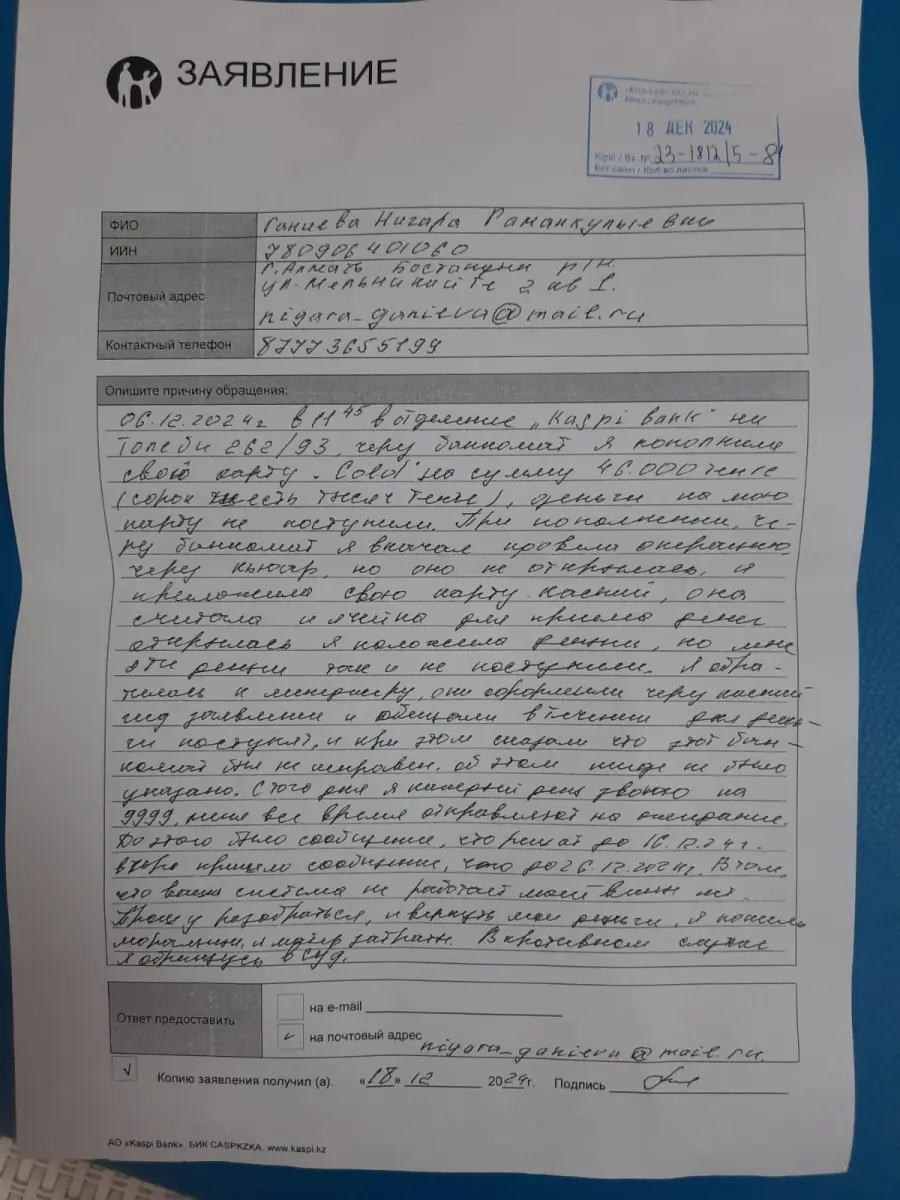 ЗАЯВЛЕНИЕ
«Kaspi Bank» АҚ / АО
18 ДЕК 2024
Кіріс / Вх. № 23-1812/5-8
Бет саны / Кол-во листов
ФИО Ганиева Нигара Раманкулыевна
ИИН 780906401060
Почтовый адрес г. Алматы Бостандыкский р/н.
ул. 2 кв 1.
nigara_ganieva@mail.ru
Контактный телефон 87773655199
Опишите причину обращения:
06.12.2024г в 11 45 в отделение „Kaspi bank" на
Толеби 262/93, черу банкомат я пополнила
свою карту. Cold на сумму 46.000 тенге
(сорок шесть тысяч тенге), деньги на мою
карту не поступили. При пополнении, че-
ру банкомат я вначал провела операцию,
через кьюар, но оно не открылась, я
приложила свою карту каспий, она
считала и ячейка для приема денег
открылась я положила деньги, но мне
эти деньги так и не поступили. Я обра-
тилась к менеджеру, они оформили черу каспий
гид заявлении и обещали в течении дня день-
ги поступят, и при этом сказали что этот бан-
комат был не исправен, об этом нигде не было
указано. С того дня я каждый день звоню на
9999, меня все время отправляют на ожидание.
До этого было сообщение, что решат до 16.12.24г.
вчера пришло сообщение, что до 26.12.2024г. В том,
что ваша система не работает моей вины нет.
Прошу разобраться, и вернуть мои деньги, я понесла
моральн. и матер затраты. В противном случае
я обращусь в суд.
Ответ предоставить
на e-mail
на почтовый адрес nigara_ganieva@mail.ru.
Копию заявления получил (а). «18» 12 2024г. Подпись
АО «Kaspi Bank», БИК CASPKZKA, www.kaspi.kz